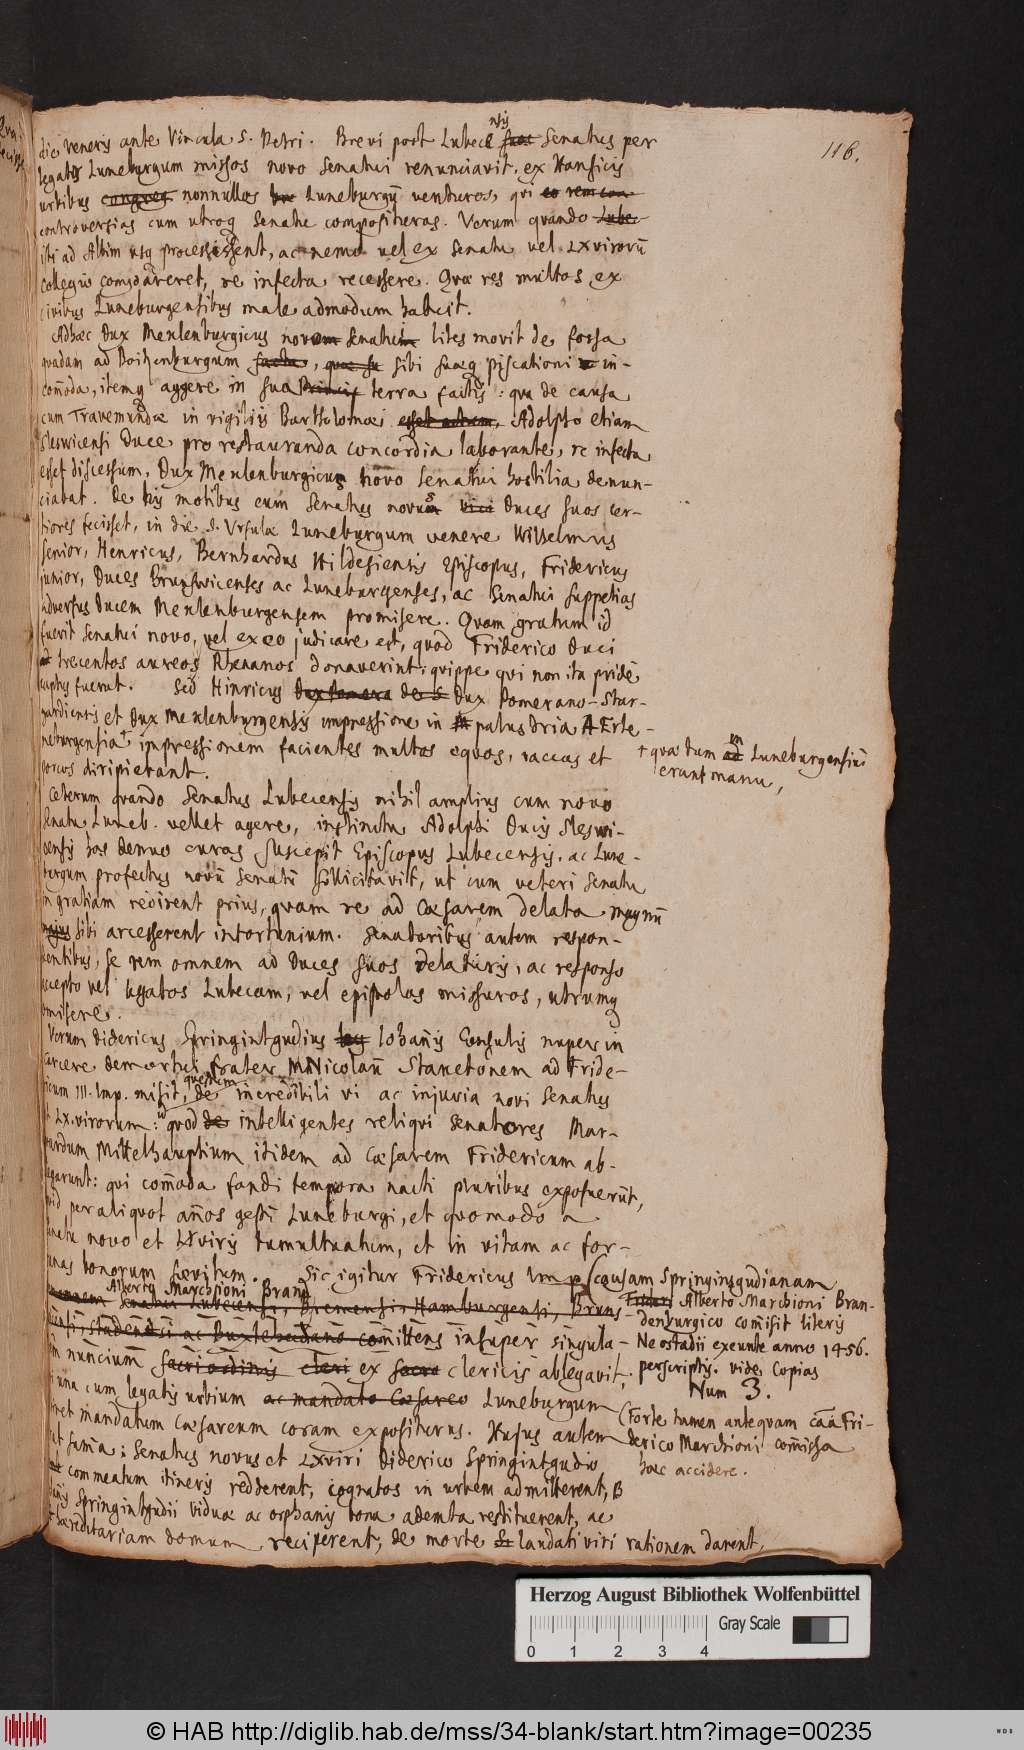 116.
die Veneris ante Vincula S. Petri. Brevi post Lubecensis Senatus per
legatos Luneburgum missos novo Senatui renunciavit, ex Hansicis
urbibus congreg nonnullos Luneburgū venturos, qui eo rem con
controversias cum utroq Senatu composituros. Verum quando Lube-
isti ad Albim usq processissent, ac nemo vel ex Senatu vel LXvirorū
Collegio compareret, re infecta recessere. Quæ res multos ex
civibus Luneburgensibus male admodum habuit.
Adhæc Dux Meklenburgicus novo Senatui lites movit de fossa
quadam ad Boitzenburgum facta, quæ su sibi suæq piscationi in-
com̄oda, itemq aggere in sua terra factis: qua de causa
cum Travemundæ in vigiliis Bartholomæi esset actum, Adolpho etiam
Sleswicensi Duce pro restauranda concordia laborante, re infecta
esset discessum, Dux Meklenburgicus novo Senatui hostilia denun-
ciabat. De his motibus cum Senatus novus Duces suos cer-
tiores fecisset, in die S. Ursulæ Luneburgum venere Wilhelmus
senior, Henricus, Bernhardus Hildesiensis Episcopus, Fridericus
junior, Duces Brunswicenses ac Luneburgenses, ac Senatui suppetias
adversus Ducem Meklenburgensem promisere. Quam gratum id
fuerit Senatui novo, vel ex eo judicare est, quod Friderico Duci
trecentos aureos Rhenanos donaverint, quippe qui non ita pridē
captus fuerat. Sed Hinricus Dux Pomerano-Star-
gardiensis et Dux Meklenburgensis impressione in paludria Arte-
neburgensia † impressionem facientes multos equos, vaccas et
porcos diripierant.
† quæ tum in Luneburgensiū
erant manu,
Ceterum quando Senatus Lubecensis nihil amplius cum novo
Senatu Luneb. vellet agere, instinctu Adolphi Ducis Sleswi-
censis has denuo curas suscepit Episcopus Lubecensis, ac Lune-
burgum profectus novū Senatū sollicitavit, ut cum veteri Senatu
in gratiam redirent prius, quam re ad Cæsarem delata magnū
majus sibi arcesserent infortunium. Senatoribus autem respon-
dentibus, se rem omnem ad Duces suos delaturos, ac responso
accepto vel legatos Lubecam, vel epistolas missuros, utrumq
omisere.
Verum Didericus Springintgudius Iohan̄is Consulis nuper in
carcere demortui frater M Nicolaū Stanetonem ad Fride-
ricum III. Imp. misit, questum de incredibili vi ac injuria novi Senatus
et LX.virorum: quod intelligentes reliqui Senatores Mar-
quardum Mittelhauptium itidem ad Cæsarem Fridericum ab-
legarunt: qui com̄oda fandi tempora nacti pluribus exposuerūt,
quid per aliquot an̄os gestū Luneburgi, et quomodo a
Senatu novo et LXviris tumultuatum, et in vitam ac for-
tunas bonorum sævitum. Sic igitur Fridericus Imp causam Springinsgudianam
Alberto Marchioni Brand
Senatui Lubecensi, Bremensi, Hamburgensi, Bruns-
Alberto Marchioni Bran-
denburgico com̄isit literis
Neostadii exeunte anno 1456.
perscriptis. vide Copias
Num 3.
Stadensi ac Buxtehudano comittens insuper singula-
nuncium sacri ordinis cleri ex sacro clericis ablegavit,
una cum legatis urbium ac mandato Cæsareo Luneburgum
mandatum Cæsareum coram expositurus. Hujus autem
(Forte tamen antequam caa Fri-
derico Marchioni com̄issa
hæc accidere.
sum̄a: Senatus novus et LXviri Diderico Springintgudio
commeatum itineris redderent, cognatos in urbem admitterent,
Springintgudii viduæ ac orphanis bona ademta restituerent, ac
hæreditariam domum reciperent, de morte laudati viri rationem darent,
Herzog August Bibliothek Wolfenbüttel
0 1 2 3 4
Gray Scale
© HAB http://diglib.hab.de/mss/34-blank/start.htm?image=00235
WDB